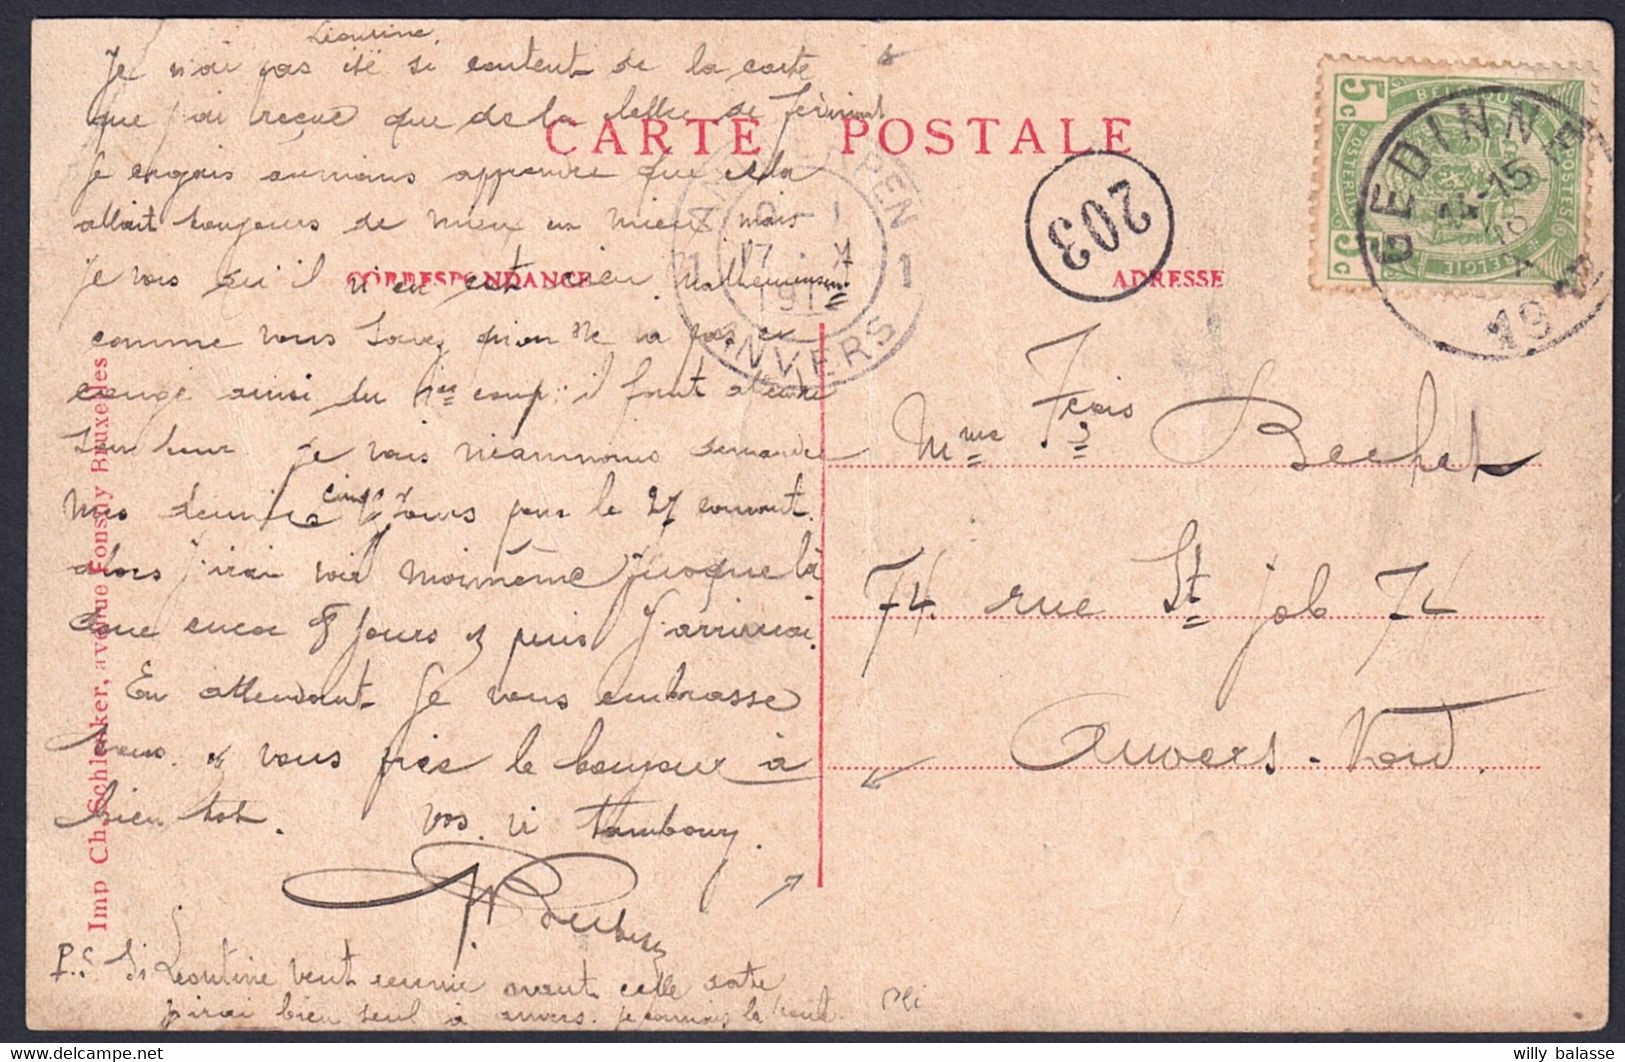 Léontine,
Je n'ai pas été si content de la carte
que j'ai reçue que de la lettre de
CARTE POSTALE
apprendre que cela
allait toujours de mieux en mieux, mais
je vois qu'il n'en est rien
CORRESPONDANCE
comme vous savez qu'on ne va pas en
congé ainsi du 1er coup, il faut attendre
son tour je vais demander
mes cinq jours pour le 27 courant.
alors j'irai voir moi même jusque là
encor 8 jours & puis j'arriverai.
En attendant je vous embrasse
tous & vous fixe le bonjour à
bien tot. vos.
P.S. Si Léontine veut venir avant cette date
j'irai bien seul à anvers. je connais la route.
Pli
Imp Ch. Schlenker, avenue Fonsny Bruxelles
ANTWERPEN
1 1
17 X
191
ANVERS
203
ADRESSE
5c 5c
BELGIQUE POSTES
POSTERIJEN BELGIE
GEDINNE
14-15
X
19
Mme Fçois Bechet
74. rue St job 74
Anvers-Nord.
willy balasse